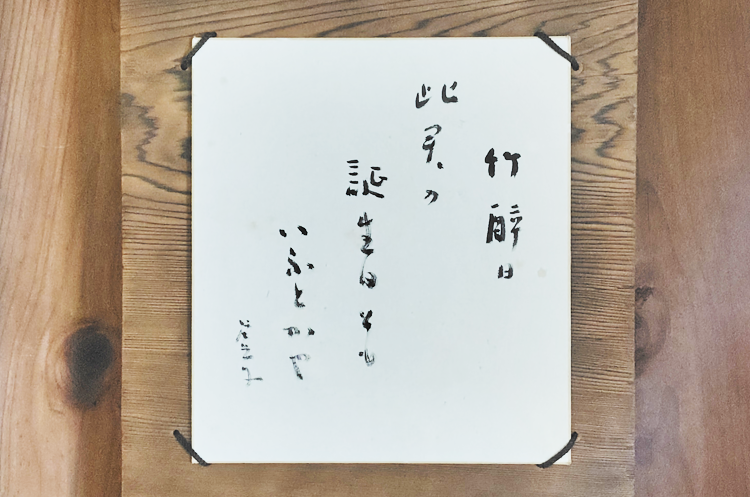 竹酔日
此君の
誕生日とも
いふとかや